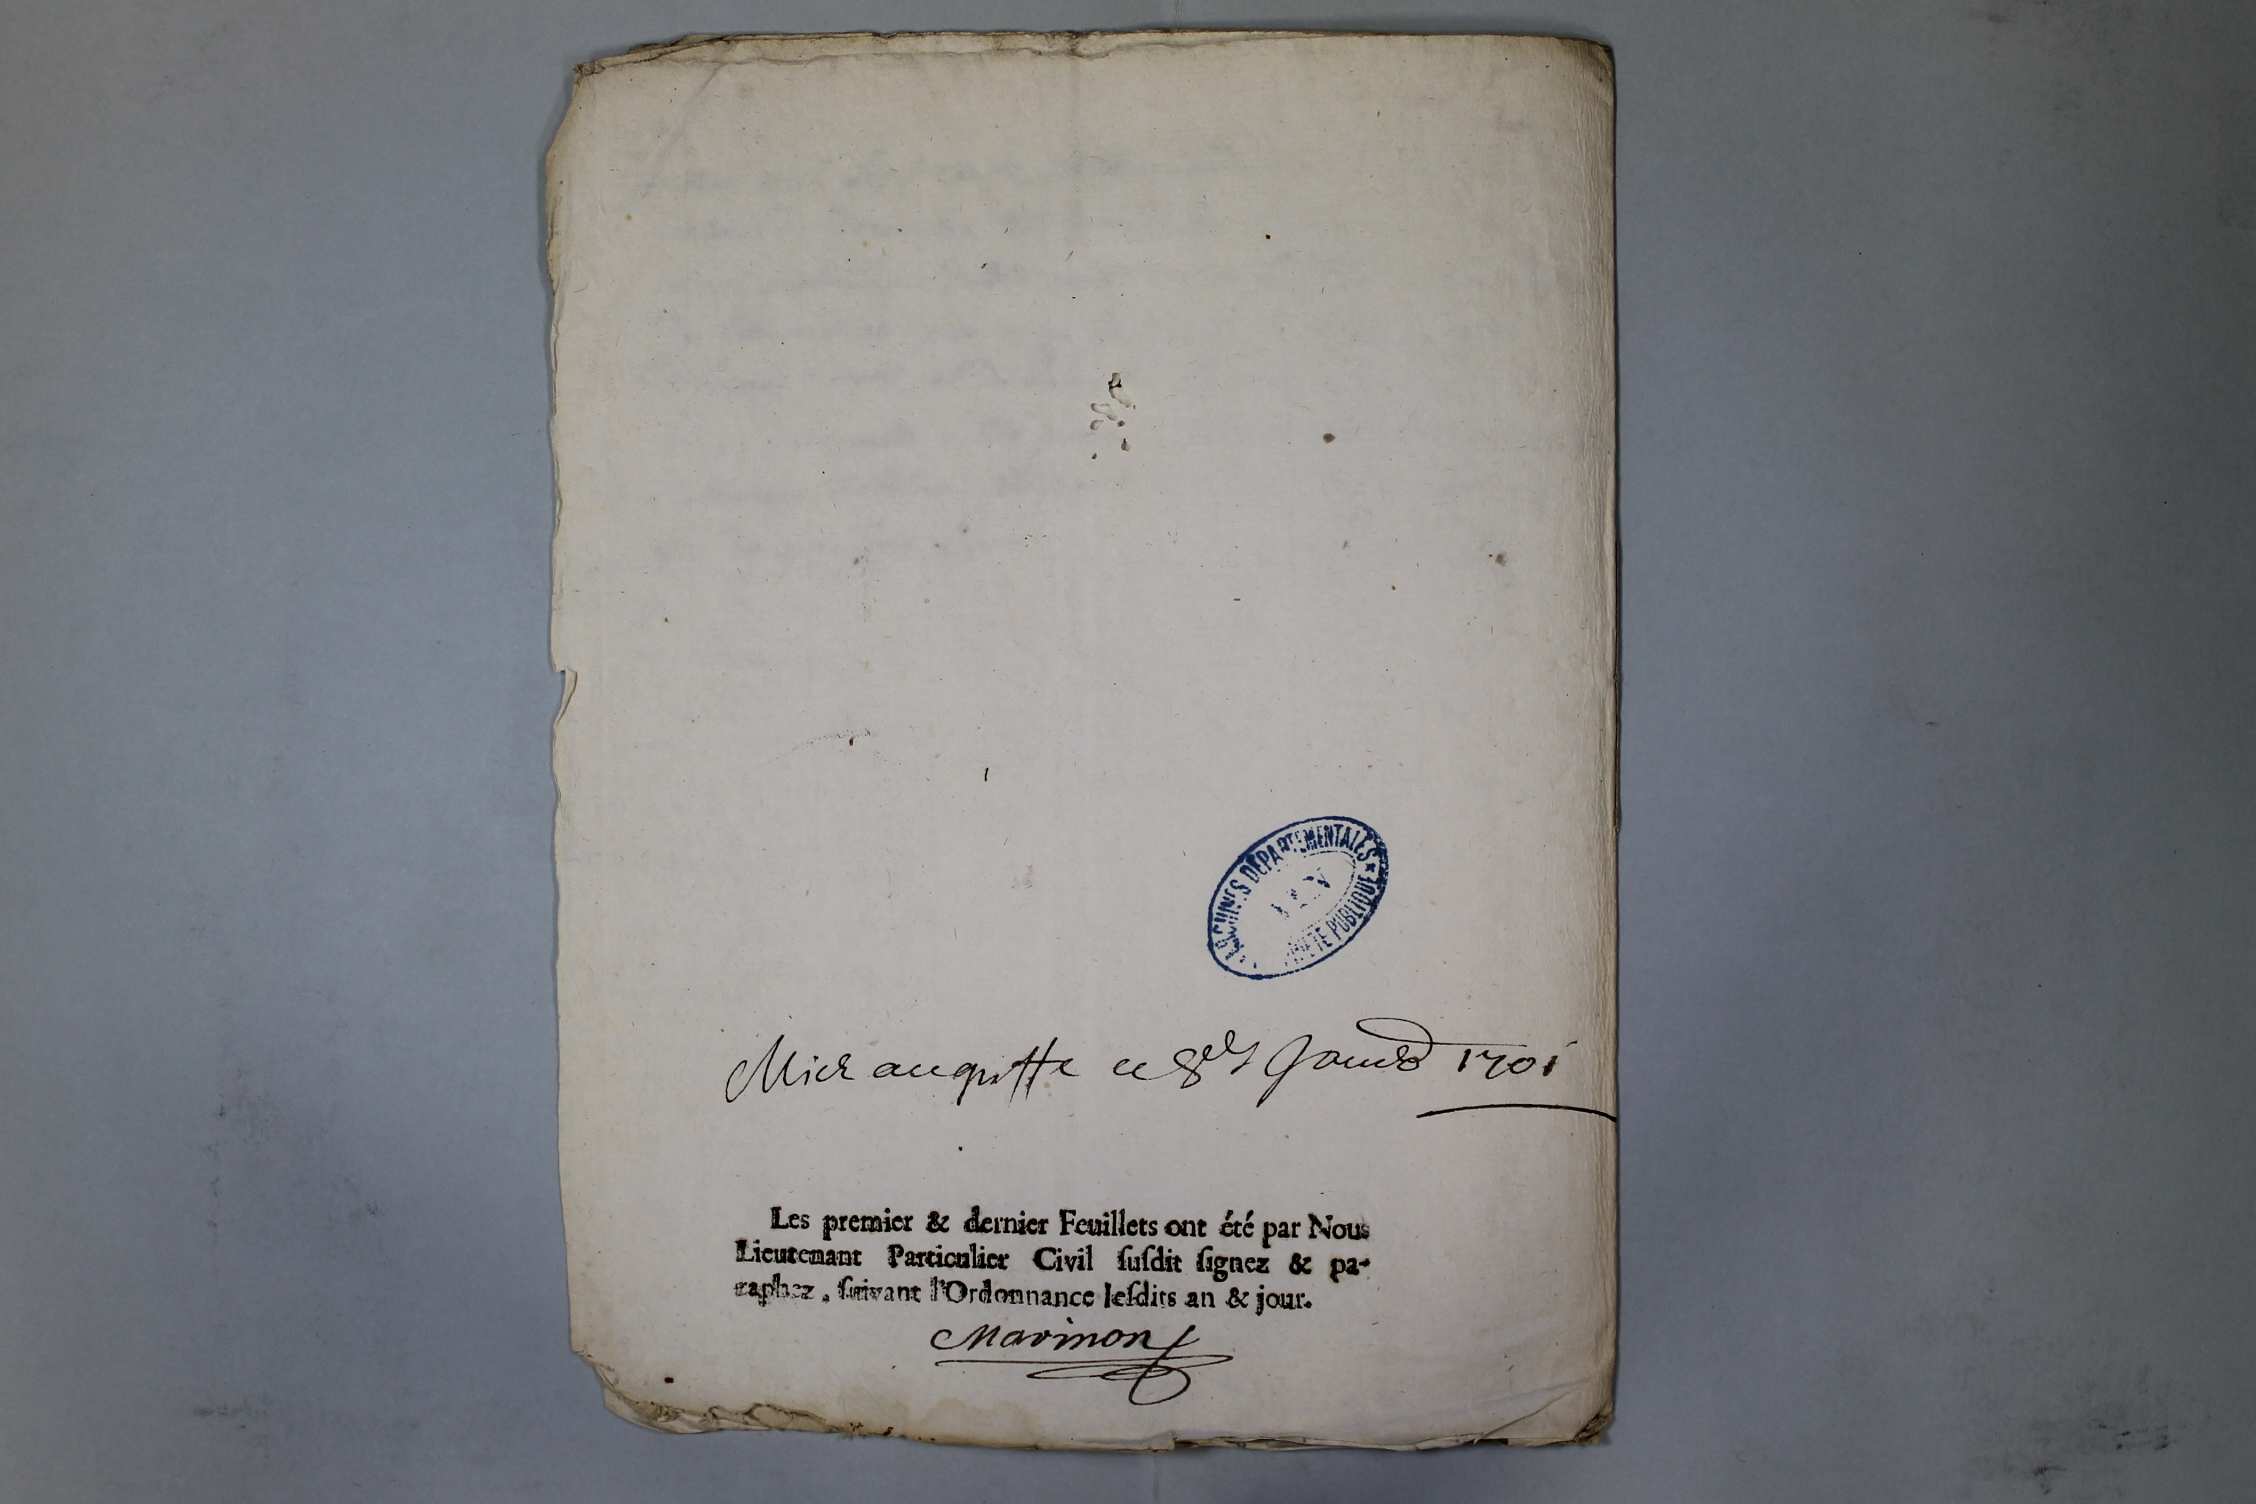 ARCHIVES DÉPARTEMENTALES
PROPRIÉTÉ PUBLIQUE
Mis au greffe ce 8e Janvr 1701
Les premier & dernier Feuillets ont été par Nous
Lieutenant Particulier Civil ſuſdit ſignez & pa-
raphez, ſuivant l'Ordonnance leſdits an & jour.
Marimon